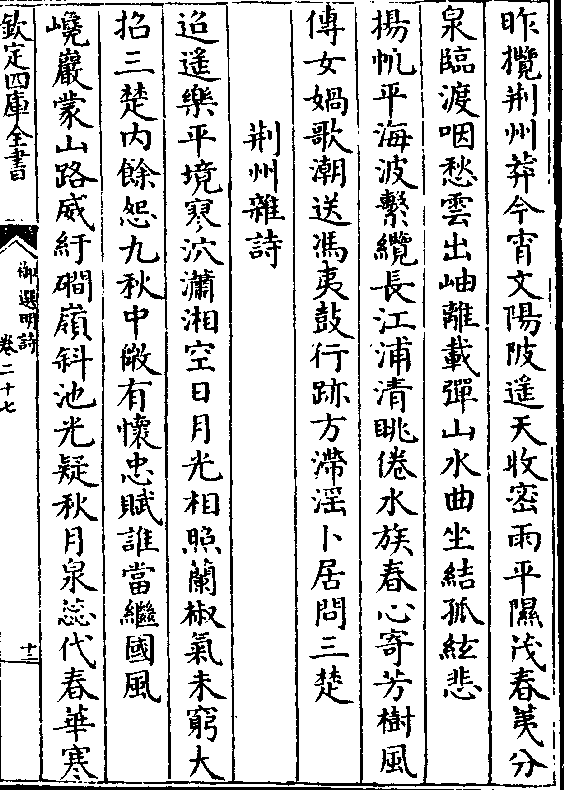 昨攬荆州莽今宵文陽陂遥天收密雨平隰茂春荑分
泉臨渡咽愁雲出岫離載彈山水曲坐結孤絃悲
揚帆平海波繫纜長江浦清眺倦水族春心寄芳樹風
傳女媧歌潮送馮夷鼓行跡方滯淫卜居問三楚
荆州雜詩
迢遥樂平境寥泬瀟湘空日月光相照蘭椒氣未窮大
招三楚内餘怨九秋中僘有懷忠賦誰當繼國風
嶢巖蒙山路威紆磵嶺斜池光疑秋月泉蕊代春華寒
欽定四庫全書
御選明詩
卷二十七
十三